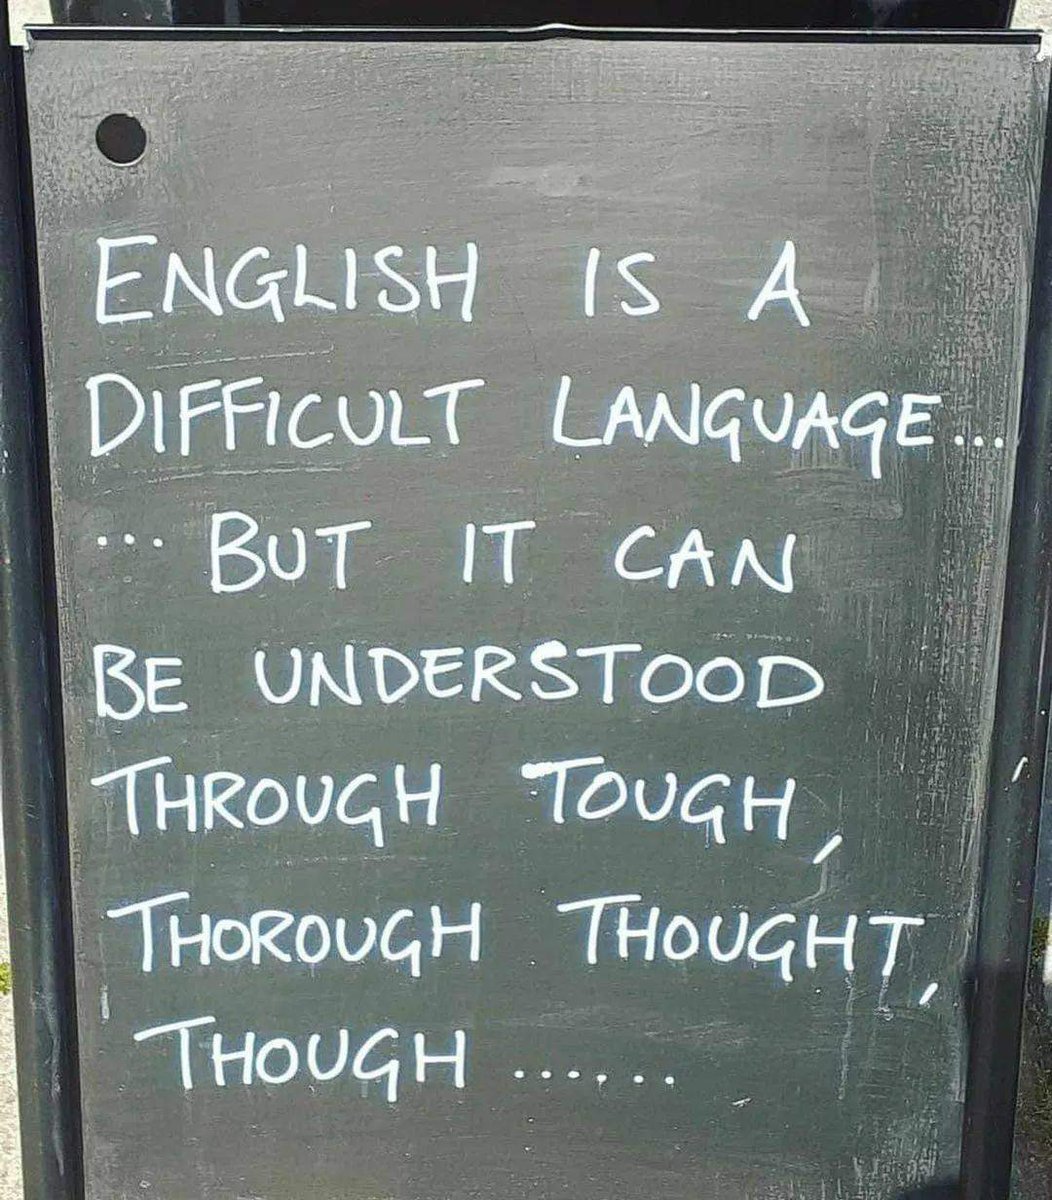 ENGLISH IS A
DIFFICULT LANGUAGE...
... BUT IT CAN
BE UNDERSTOOD
THROUGH TOUGH,
THOROUGH THOUGHT,
THOUGH ......